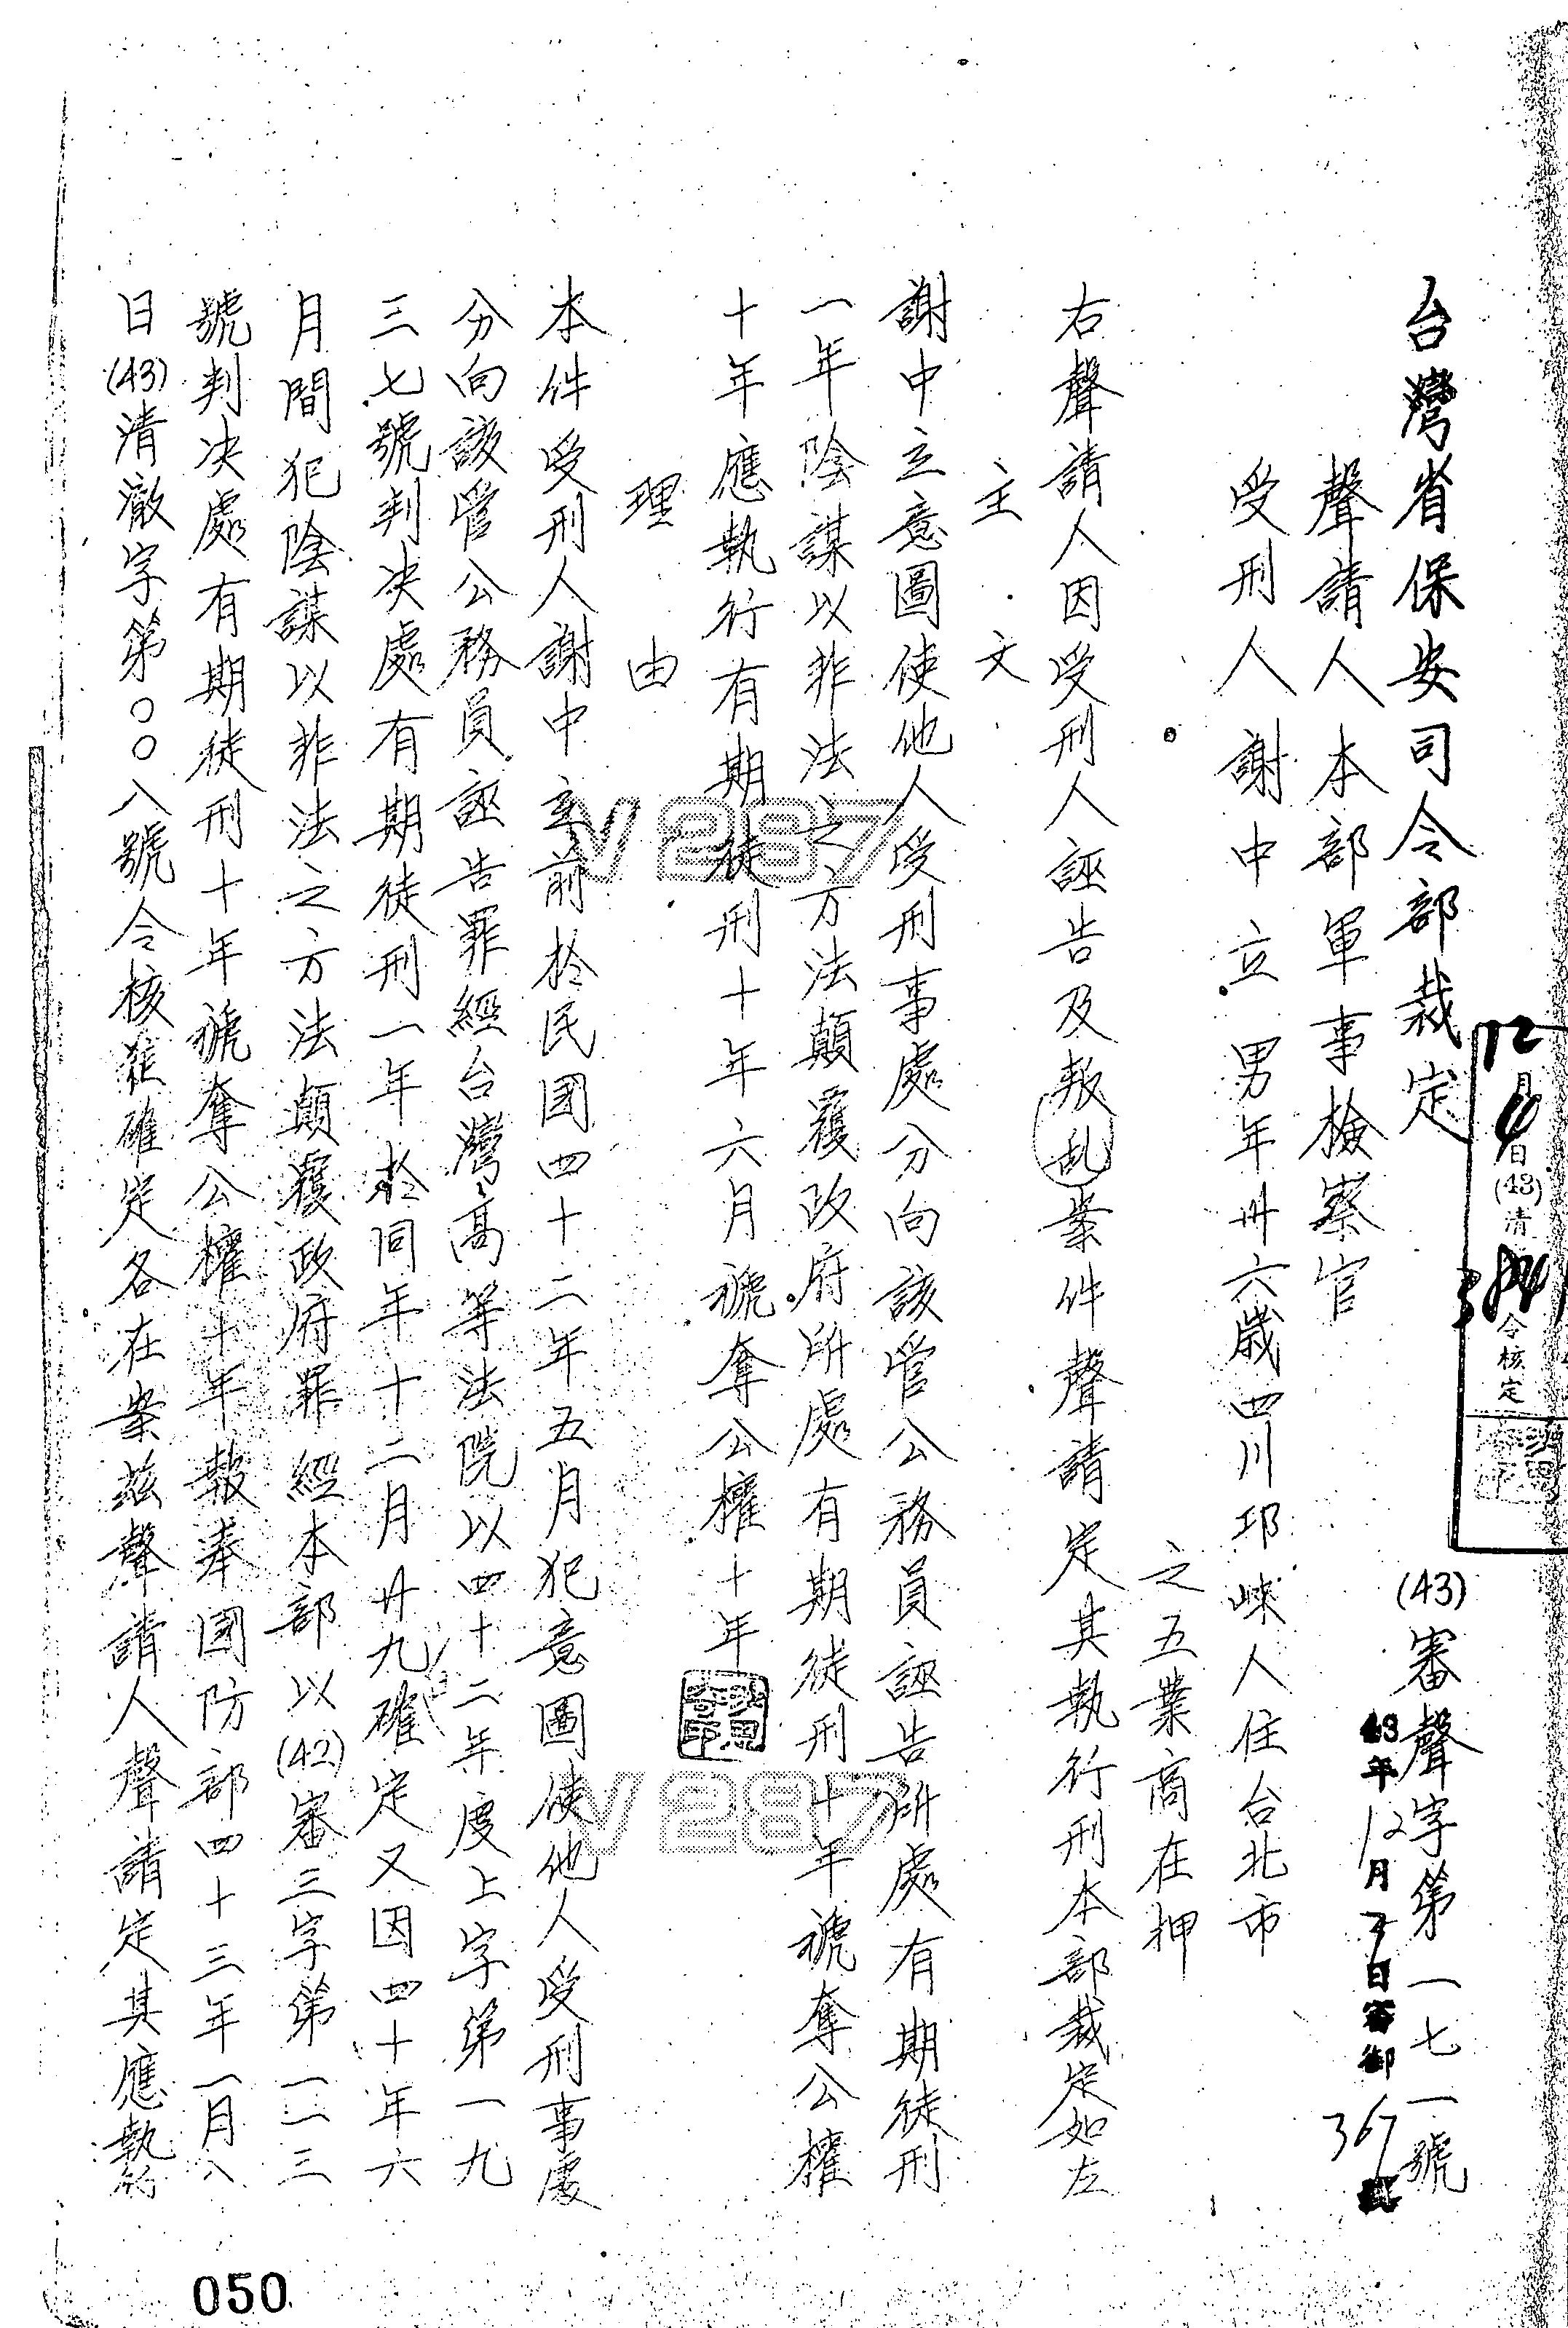 台灣省保安司令部裁定
(43)審聲字第一七一號
12月 日(43)清 令核定
43年12月 日審 367
聲請人本部軍事檢察官
受刑人謝中立男年卅六歲四川邛崍人住台北市
之五業商在押
右聲請人因受刑人誣告及叛乱業件聲請定其執行刑本部裁定如左
主文
謝中立意圖使他人受刑事處分向該管公務員誣告所處有期徒刑
一年陰謀以非法之方法顛覆政府所處有期徒刑十年褫奪公權
十年應執行有期徒刑十年六月褫奪公權十年
理由
本件受刑人謝中立前於民國四十二年五月犯意圖使他人受刑事處
分向該管公務員誣告罪經台灣高等法院以四十二年度上字第一九
三七號判决處有期徒刑一年於同年十二月廿九日確定又因四十年六
月間犯陰謀以非法之方法顛覆政府罪經本部以(42)審三字第一一三
號判决處有期徒刑十年褫奪公權十年報奉國防部四十三年一月八
日(43)清澈字第〇〇八號令核准確定各在案茲聲請人聲請定其應執行
V 287
V 287
050